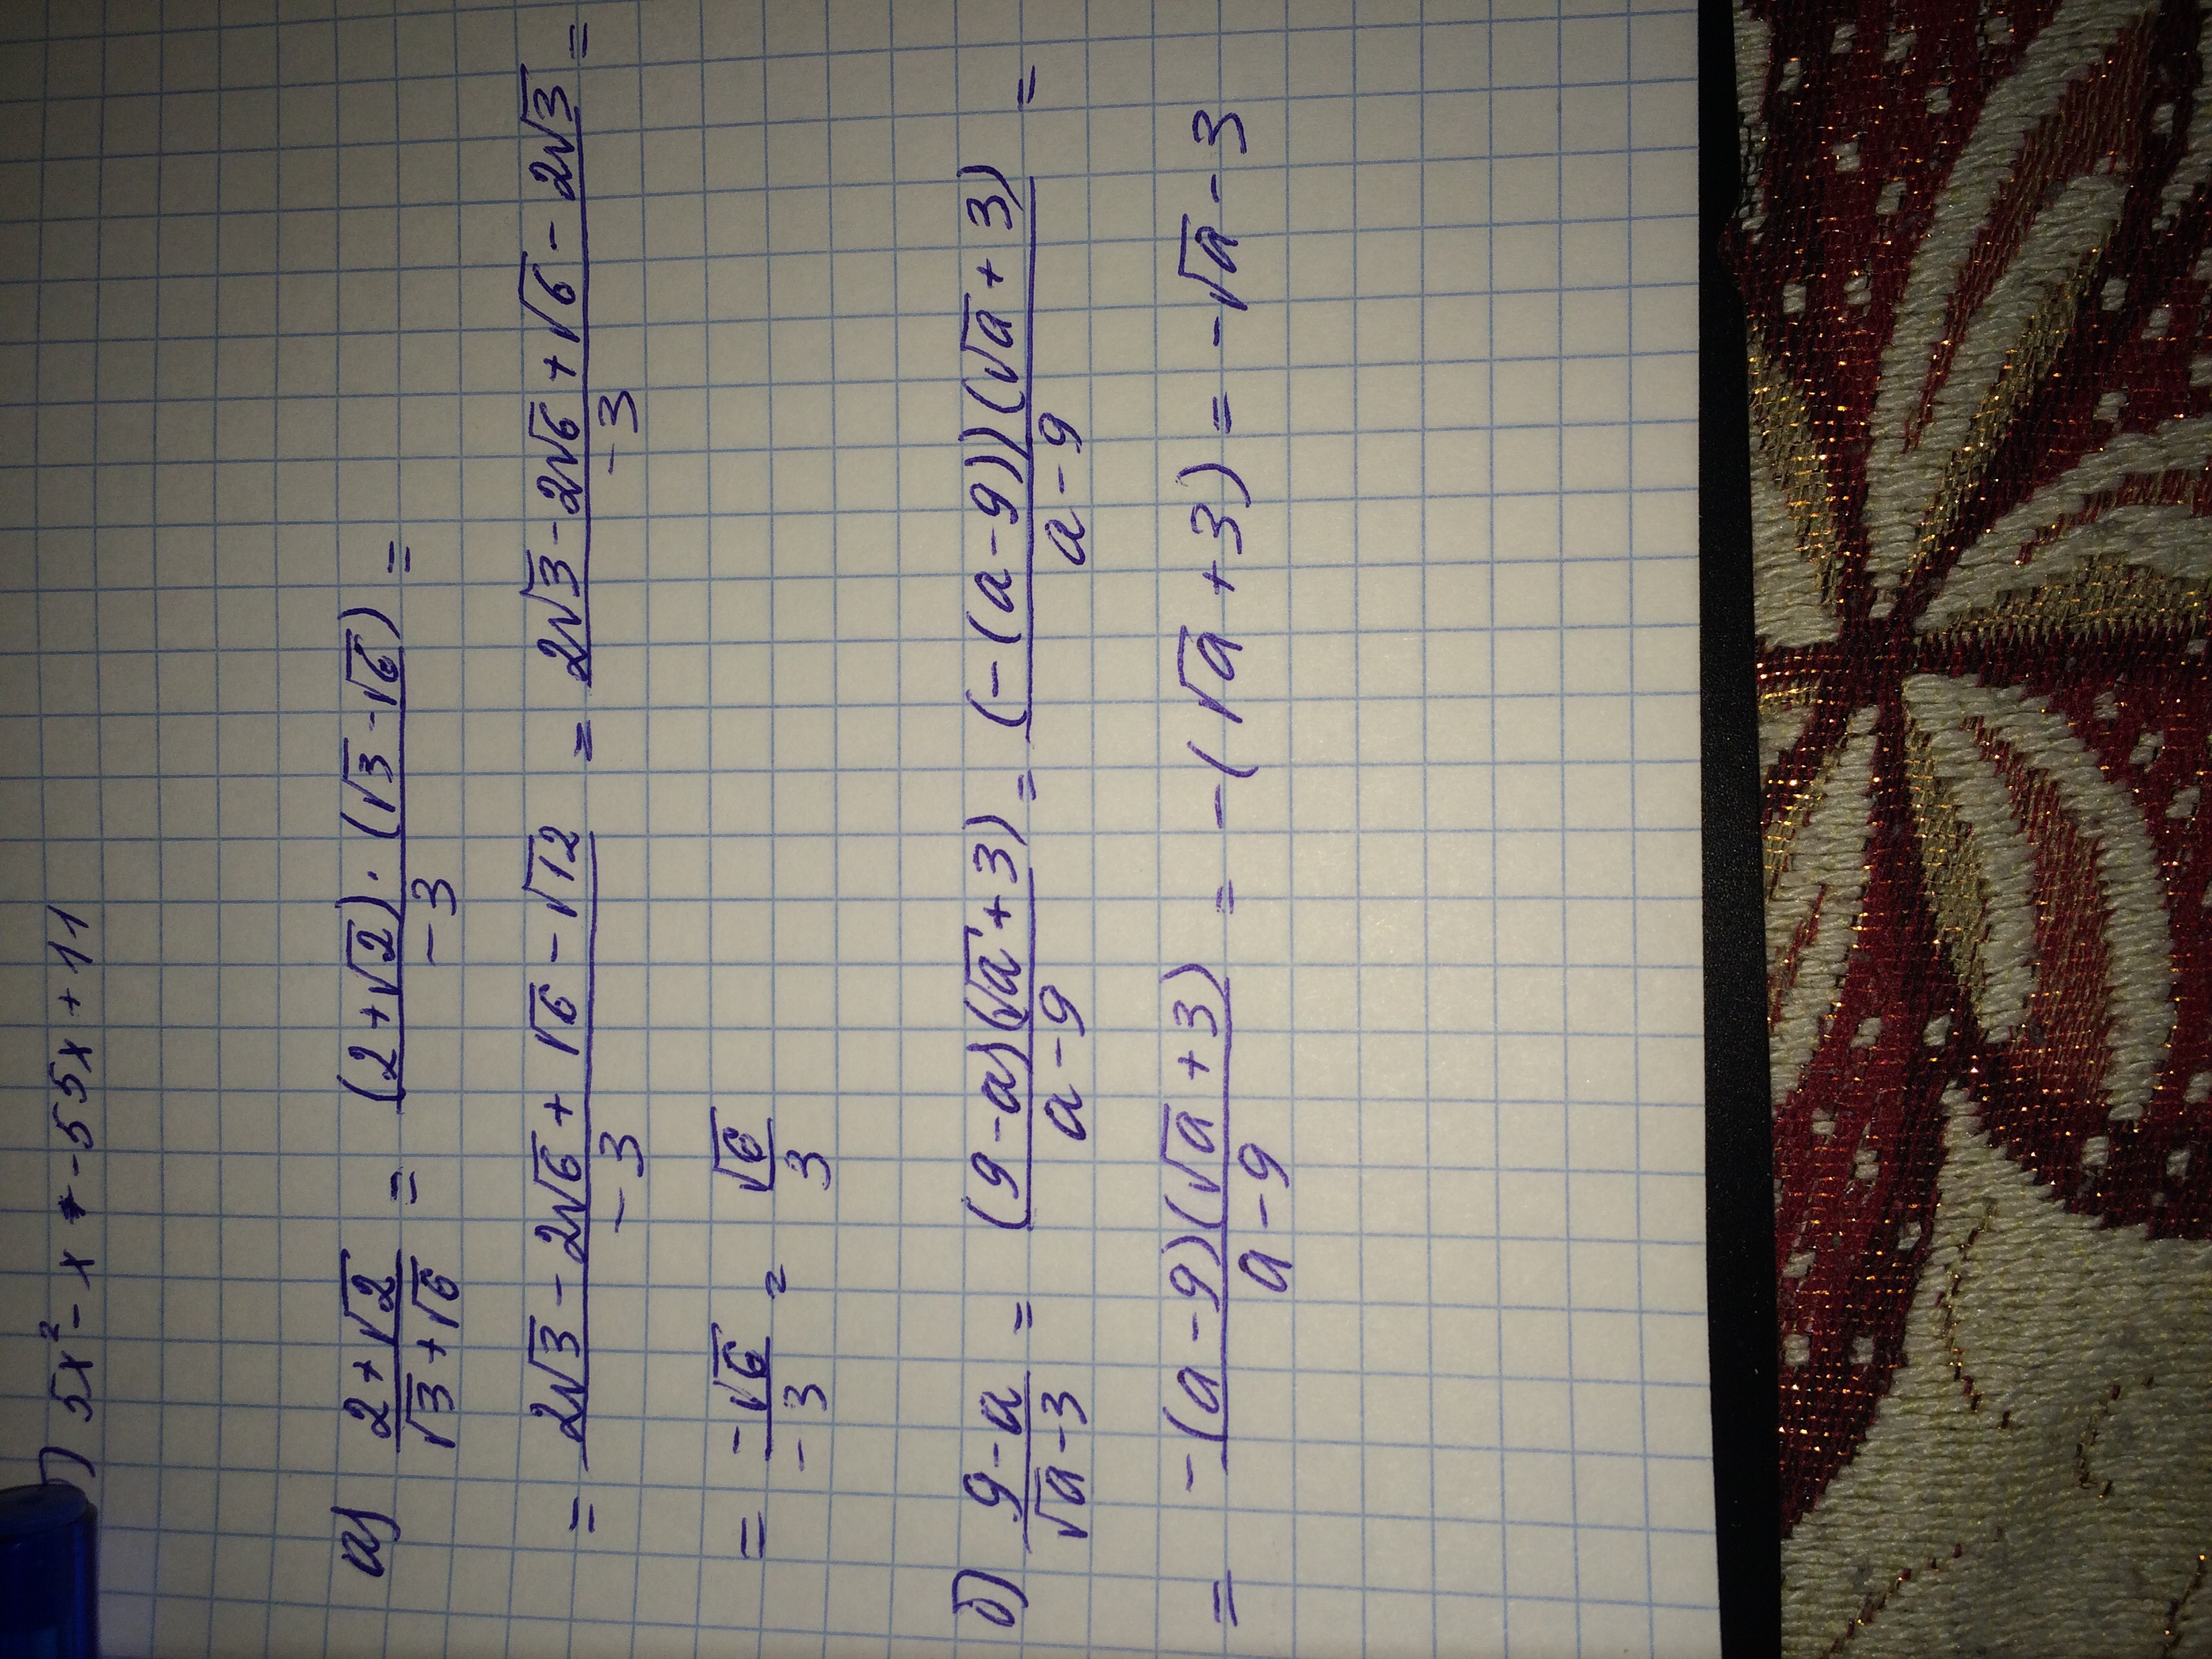 б) 5x² - x - 55x + 11
а) (2+√2)/(√3+√6) = ((2+√2)·(√3-√6))/(-3) =
= (2√3 - 2√6 + √6 - √12)/(-3) = (2√3 - 2√6 + √6 - 2√3)/(-3) =
= (-√6)/(-3) = √6/3
б) (9-a)/(√a-3) = ((9-a)(√a+3))/(a-9) = ((-(a-9))(√a+3))/(a-9) =
= (-(a-9)(√a+3))/(a-9) = -(√a+3) = -√a-3